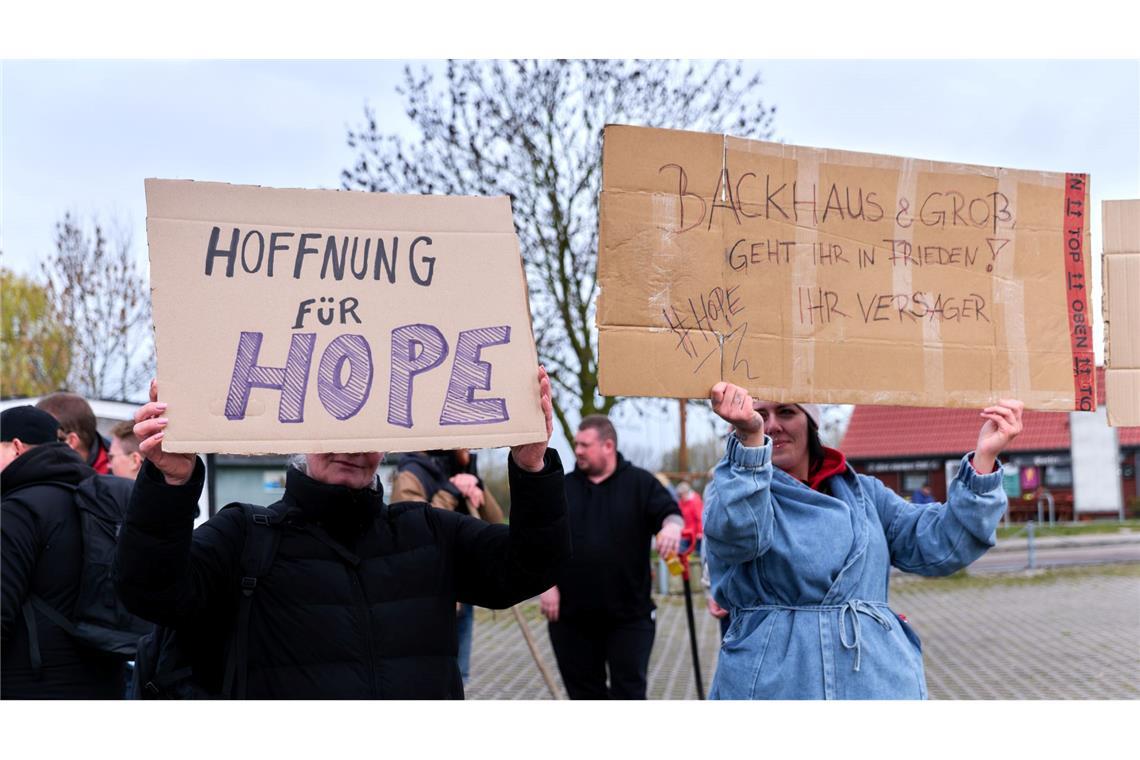 HOFFNUNG
FÜR
HOPE
BACKHAUS & GROß,
GEHT IHR IN FRIEDEN!
IHR VERSAGER
#HOPE
TOP
OBEN